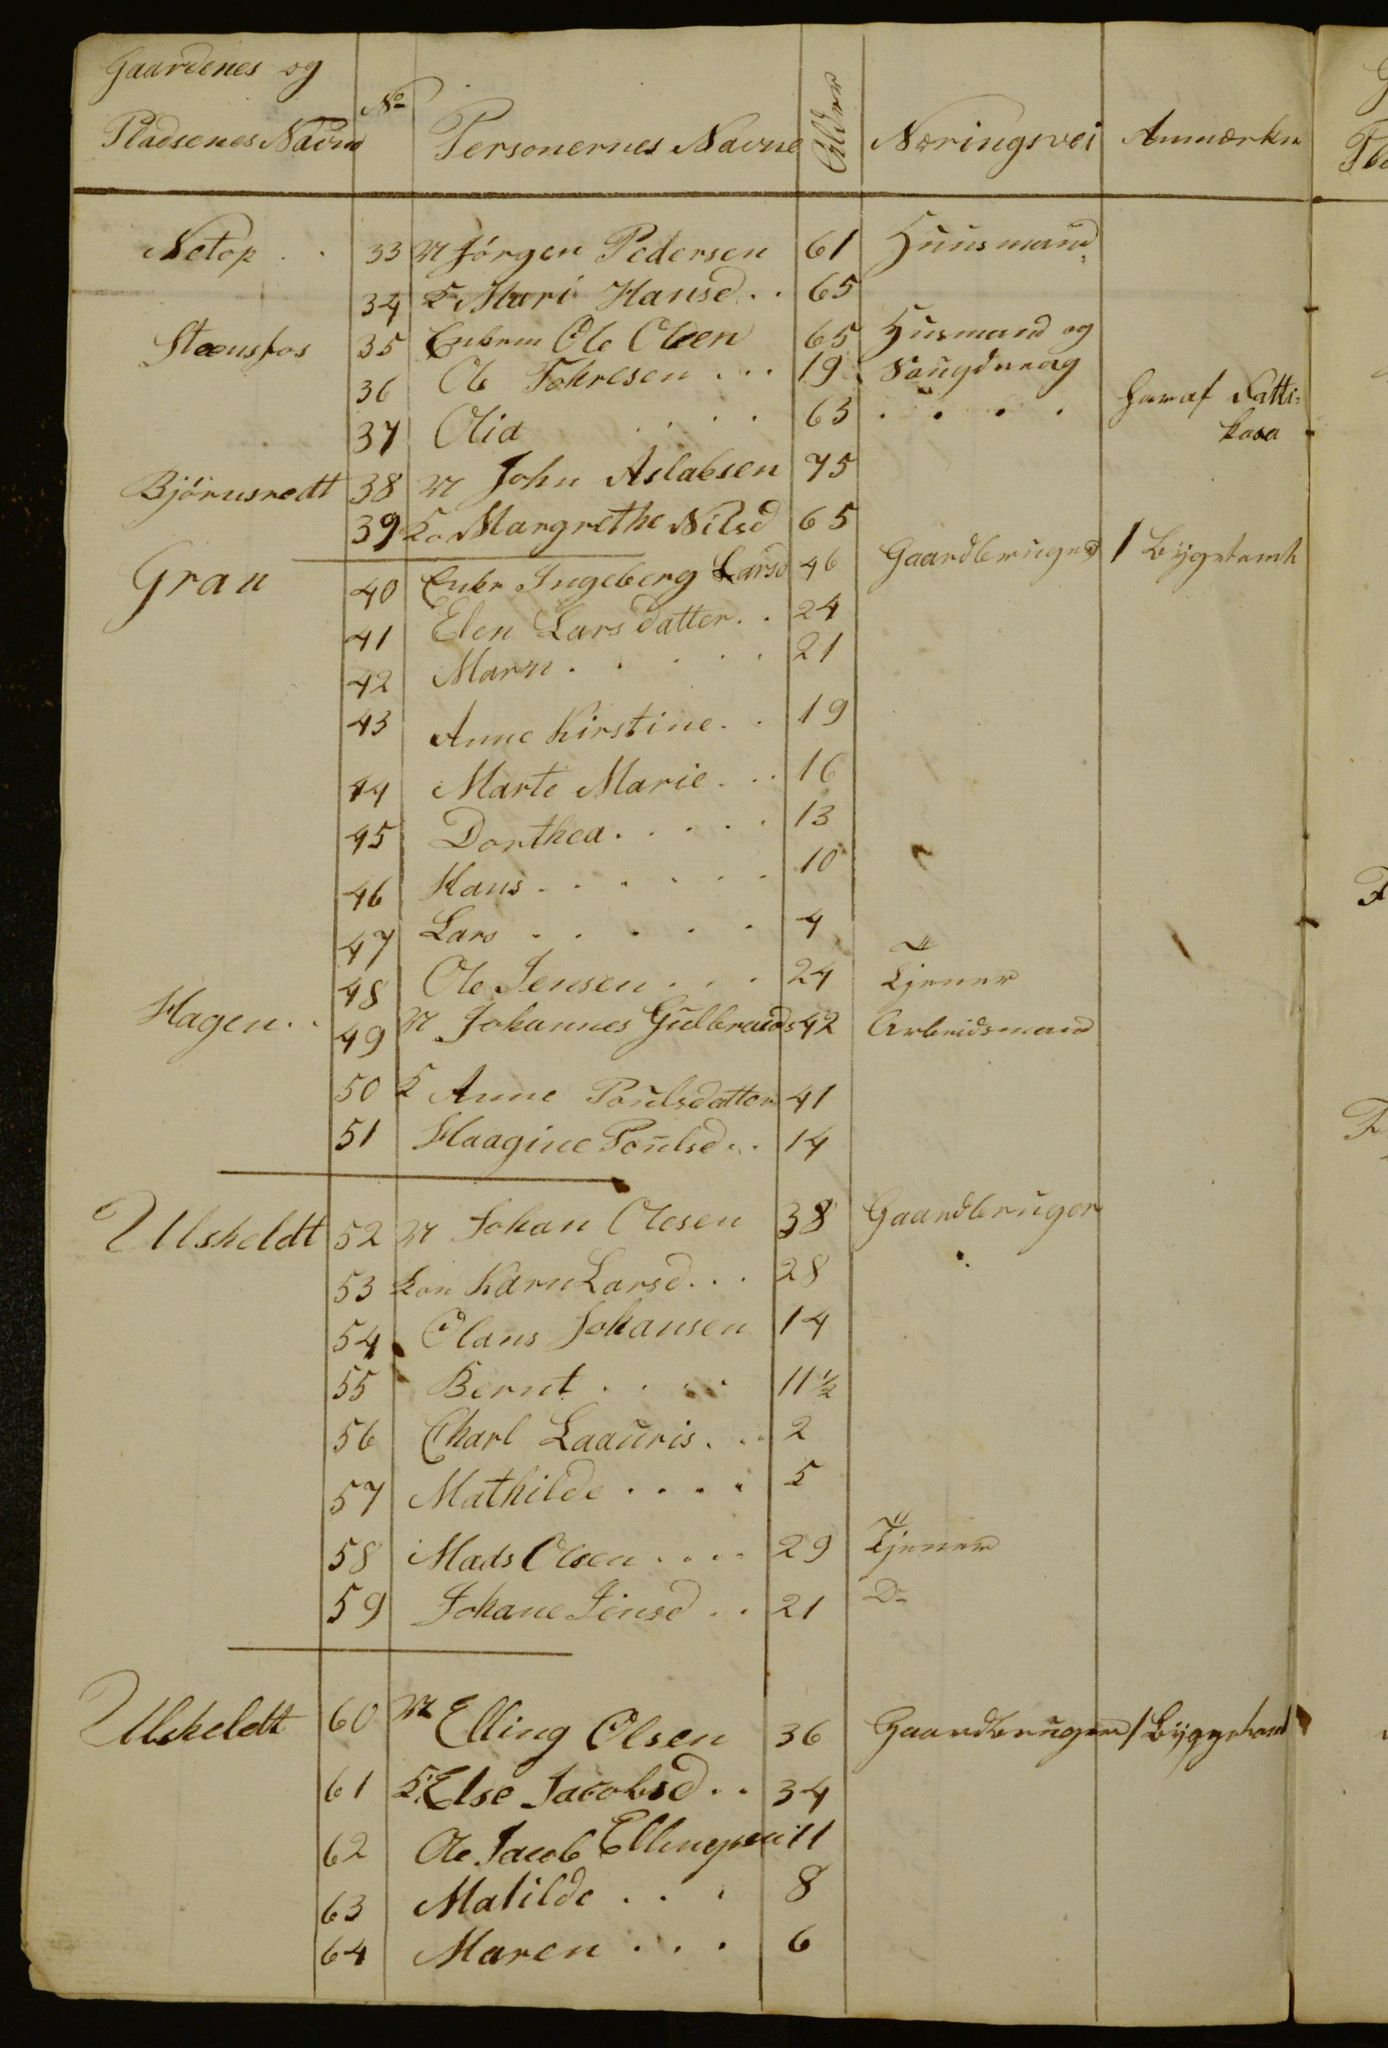 Gaardenes og
Pladsenes Navne No Personernes Navne Alder Næringsvei Anmærkn
Netop . . 33 M Jörgen Pedersen 61 Huusmand
34 K Mari Hansd . . 65
Stoensfos 35 Enkem Ole Olsen 65 Husmand og
36 Ole Tohresen . . . 19 Saugdreng
37 Olia . . . 63 . . . . har af Fatti=
kasa
Björnsredt 38 M John Aslaksen 75
39 Ko Margrethe Nilsd 65
Gran 40 Enke Ingeberg Larsd 46 Gaardbruger 1
41 Elen Larsdatter . . 24
42 Marn . . . . . 21
43 Anne Kirstine . . 19
44 Marte Marie . . . 16
45 Dorthea . . . . . 13
46 Hans . . . . . . 10
47 Lars . . . . . 4
48 Ole Jensen . . . 24 Tjener
Hagen . . 49 M Johannes Gulbrands 42 Arbeidsmand
50 K Anne Poulsdatter 41
51 Haagine Poulsd . . 14
Ulsheldt 52 M Johan Olesen 38 Gaardbruger
53 Kon Karn Larsd . . . 28
54 Olans Johansen 14
55 Bernt . . . . 11 1/2
56 Charl Laauris . . . 2
57 Mathilde . . . . 5
58 Mads Olsen . . . . 29 Tjener
59 Johane Jensd . . 21 D-
Ulsheldt 60 M Elling Olsen 36 Gaardbruger 1
61 K Else Jacobsd . . 34
62 Ole Jacob Ellingsen 11
63 Matilde . . . 8
64 Maren . . . 6